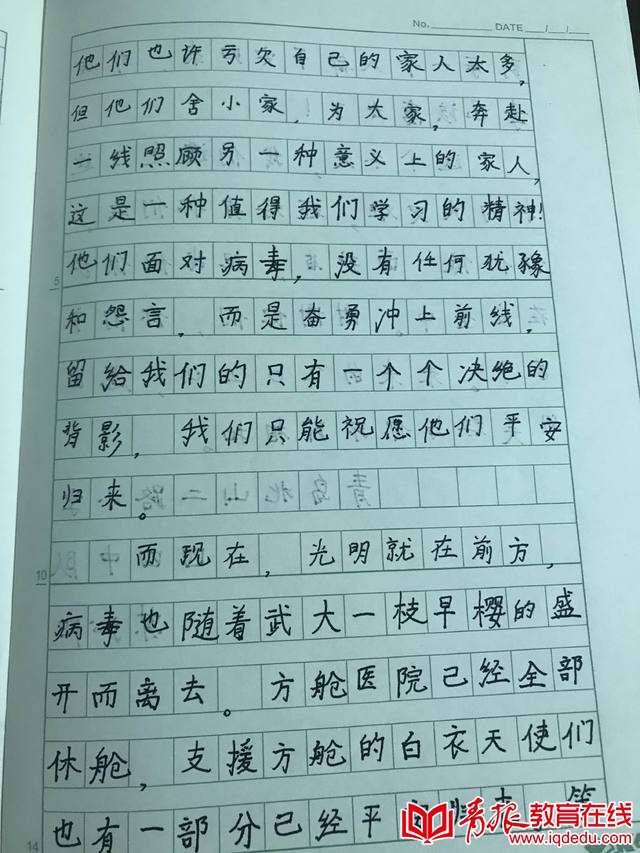 No. DATE / /
他们也许亏欠自己的家人太多，
但他们舍小家，为大家，奔赴
一线照顾另一种意义上的家人，
这是一种值得我们学习的精神！
他们面对病毒，没有任何犹豫
5
和怨言，而是奋勇冲上前线，
留给我们的只有一个个决绝的
背影，我们只能祝愿他们平安
归来。
而现在，光明就在前方，
10
病毒也随着武大一枝早樱的盛
开而离去。方舱医院已经全部
休舱，支援方舱的白衣天使们
也有一部分已经平
14
青报教育在线
www.iqdedu.com